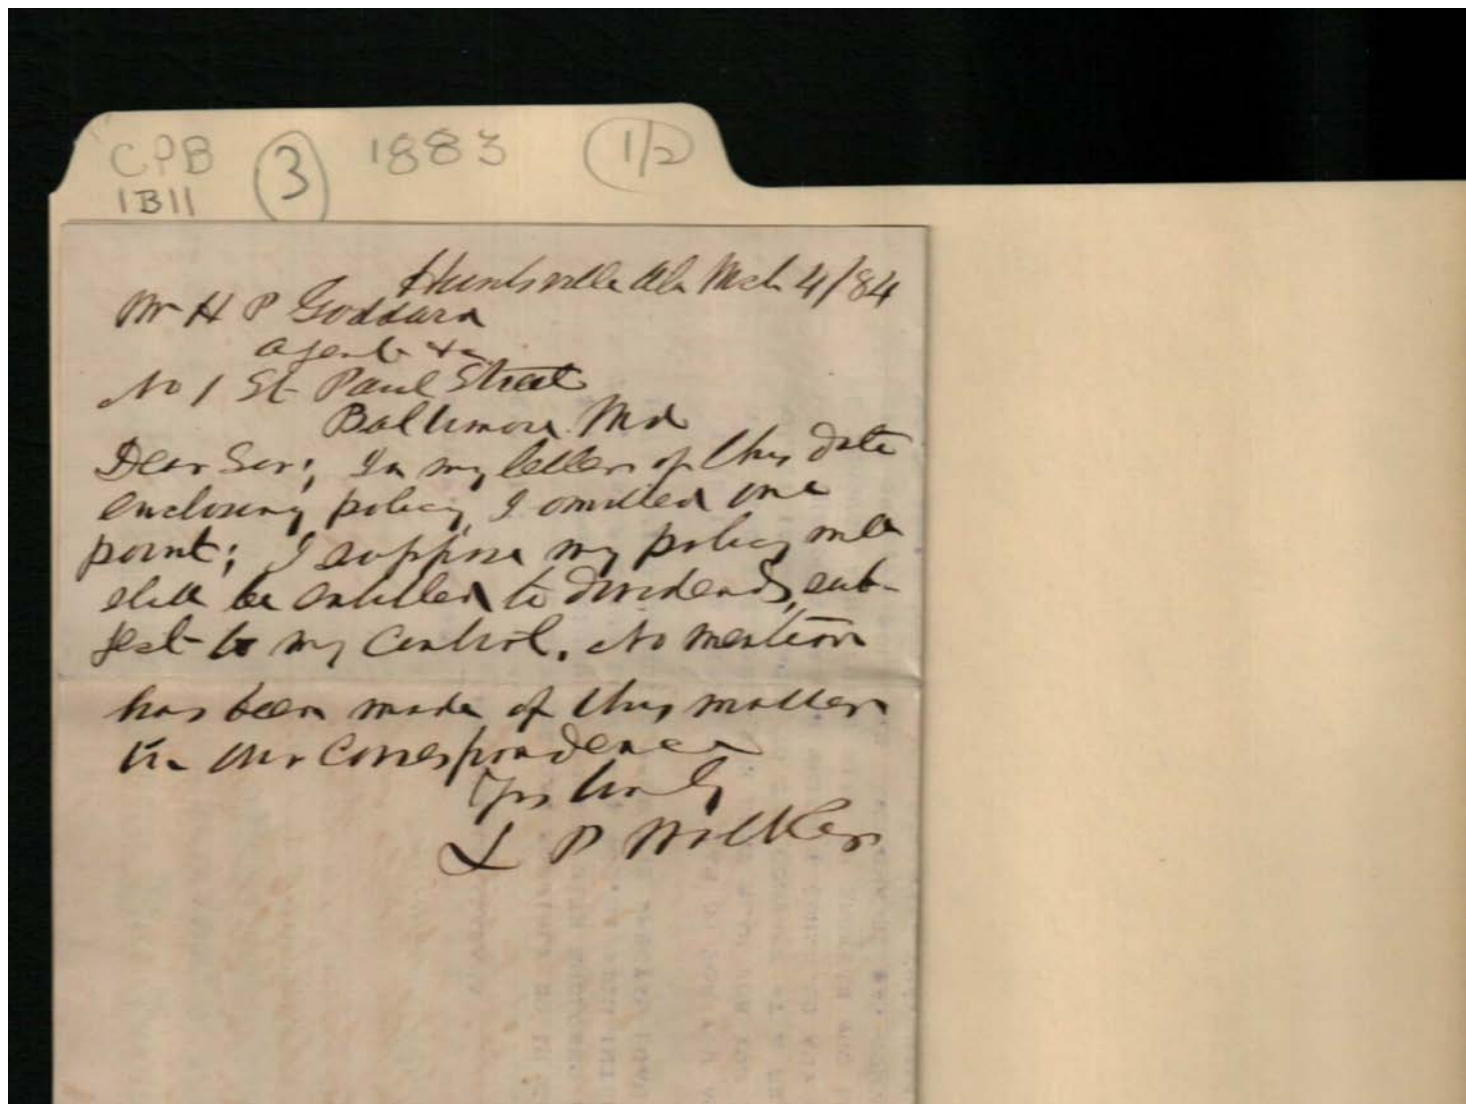 CPB 3 1883 1/2
1B11
Huntsville Ala Mch 4/84
Mr H P Goddard
Agent &c
No 1 St Paul Street
Baltimore Md
Dear Sir; In my letter of this date
enclosing policy, I omitted one
point; I suppose my policy will
still be entitled to dividends, sub-
ject to my control. No mention
has been made of this matter
in our correspondence
Yrs truly
L P Walker